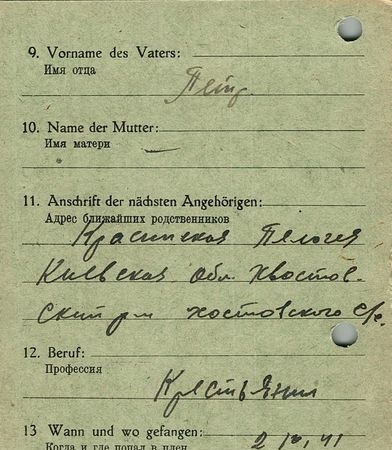 9. Vorname des Vaters:
Имя отца
Петр
10. Name der Mutter:
Имя матери
11. Anschrift der nächsten Angehörigen:
Адрес ближайших родственников
Красинская Пелагея
Киевская обл. Хвостов-
ский р-н
12. Beruf:
Профессия
Крестьянин
13 Wann und wo gefangen:
Когда и где попал в плен